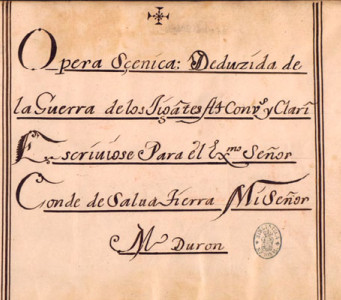 Opera Sçenica: Deduzida de
la Guerra de los Jigātes Cō y Clarī
Escriuiose Para el Exmo Señor
Conde de Saluatierra Mi Señor
Mro Duron